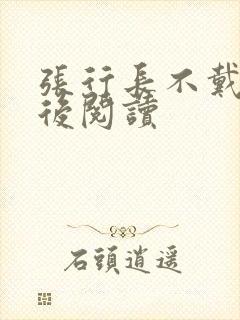 張行長不戴
後閱讀
石頭逍遥